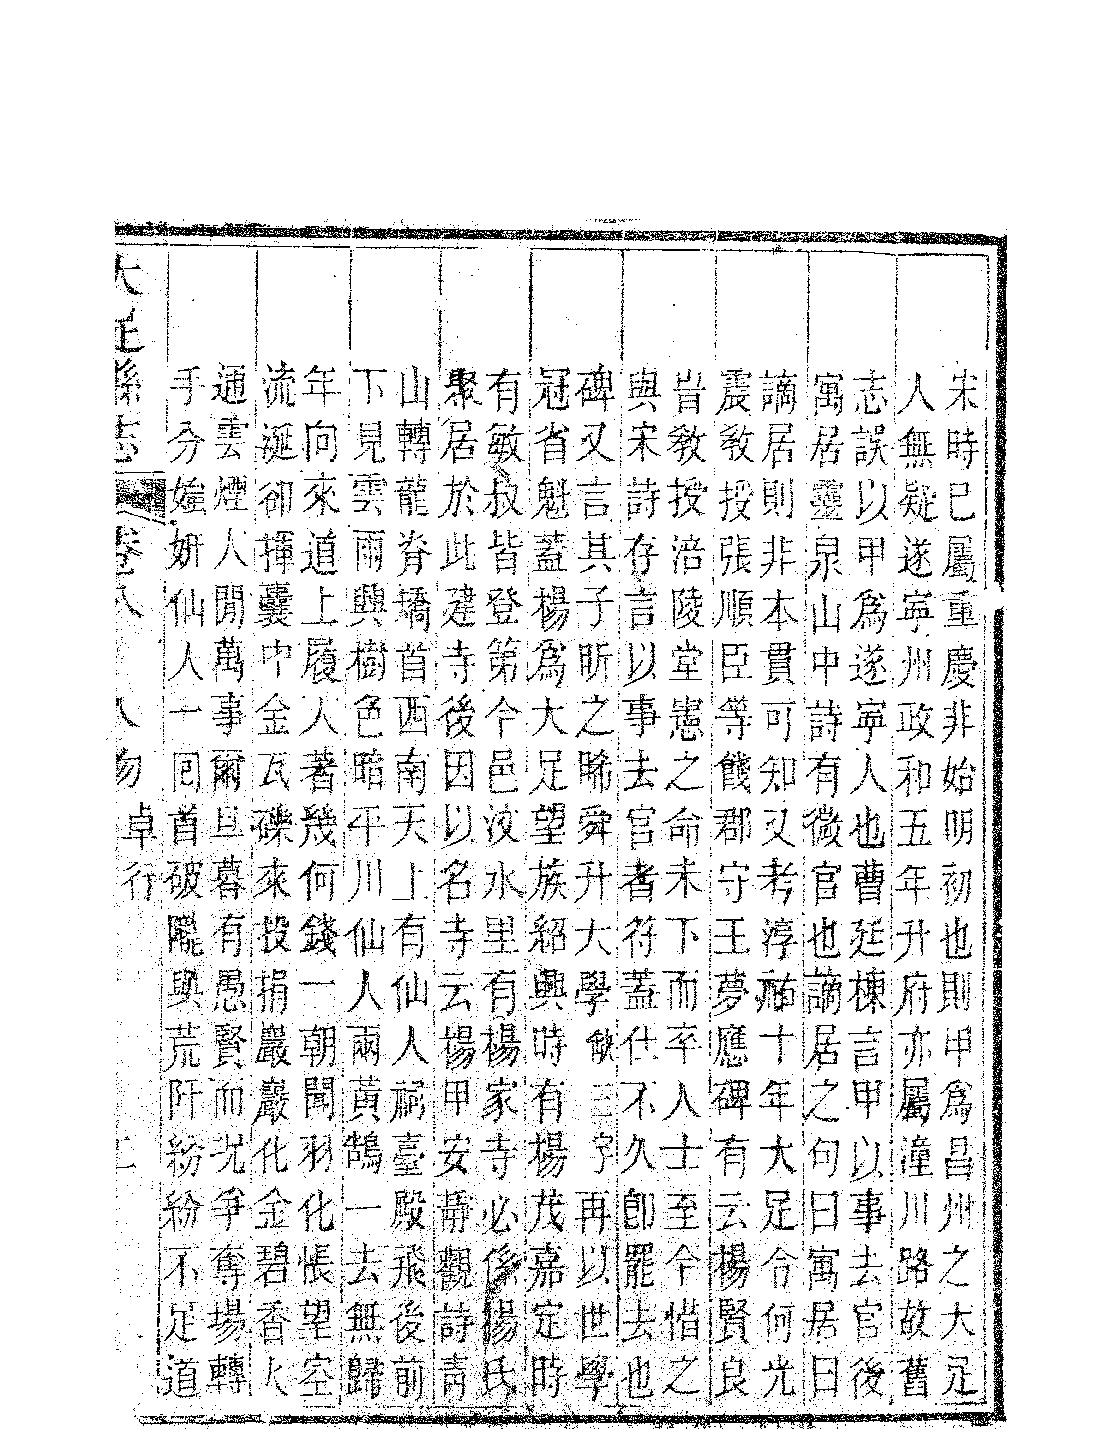 宋時已屬重慶非始明初也則甲爲昌州之大足
人無疑遂寧州政和五年升府亦屬潼川路故舊
志誤以甲爲遂寧人也曹延棟言甲以事去官後
寓居靈泉山中詩有微官也謫居之句曰寓居曰
謫居則非本貫可知又考淳祐十年大足令何光
震敎授張順臣等餞郡守王夢應碑有云楊賢良
旹敎授涪陵堂憲之命未下而卒人士至今惜之
與宋詩存言以事去官者符蓋仕不久卽罷去也
碑又言其子昕之晞舜升大學缺三字再以世學
冠省魁蓋楊爲大足望族紹興時有楊茂嘉定時
有敏叔皆登第今邑汶水里有楊家寺必係楊氏
聚居於此建寺後因以名寺云楊甲安靜觀詩靑
山轉龍脊墧首西南天上有仙人祠臺殿飛後前
下見雲雨興樹色暗平川仙人兩黃鵠一去無歸
年向來道上履人著幾何錢一朝聞羽化悵望空
流涎卻揮囊中金瓦礫來投捐巖巖化金碧香火
通雲煙人閒萬事爾旦暮有愚賢而況爭奪場轉
手分媸妍仙人一囘首破隴與荒阡紛紛不足道
大足縣志 卷八 人物 卓行 二